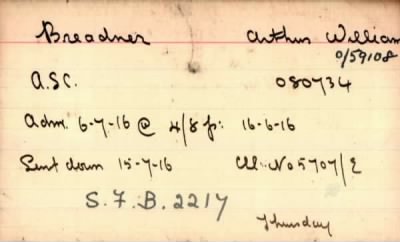 Breadner Arthur William
0/59108
A.S.C. 080734
Adm. 6-7-16 @ 4/8 fr: 16-6-16
Sent down 15-7-16 Cll. No 5707/E
S.F.B. 2217
Thursday